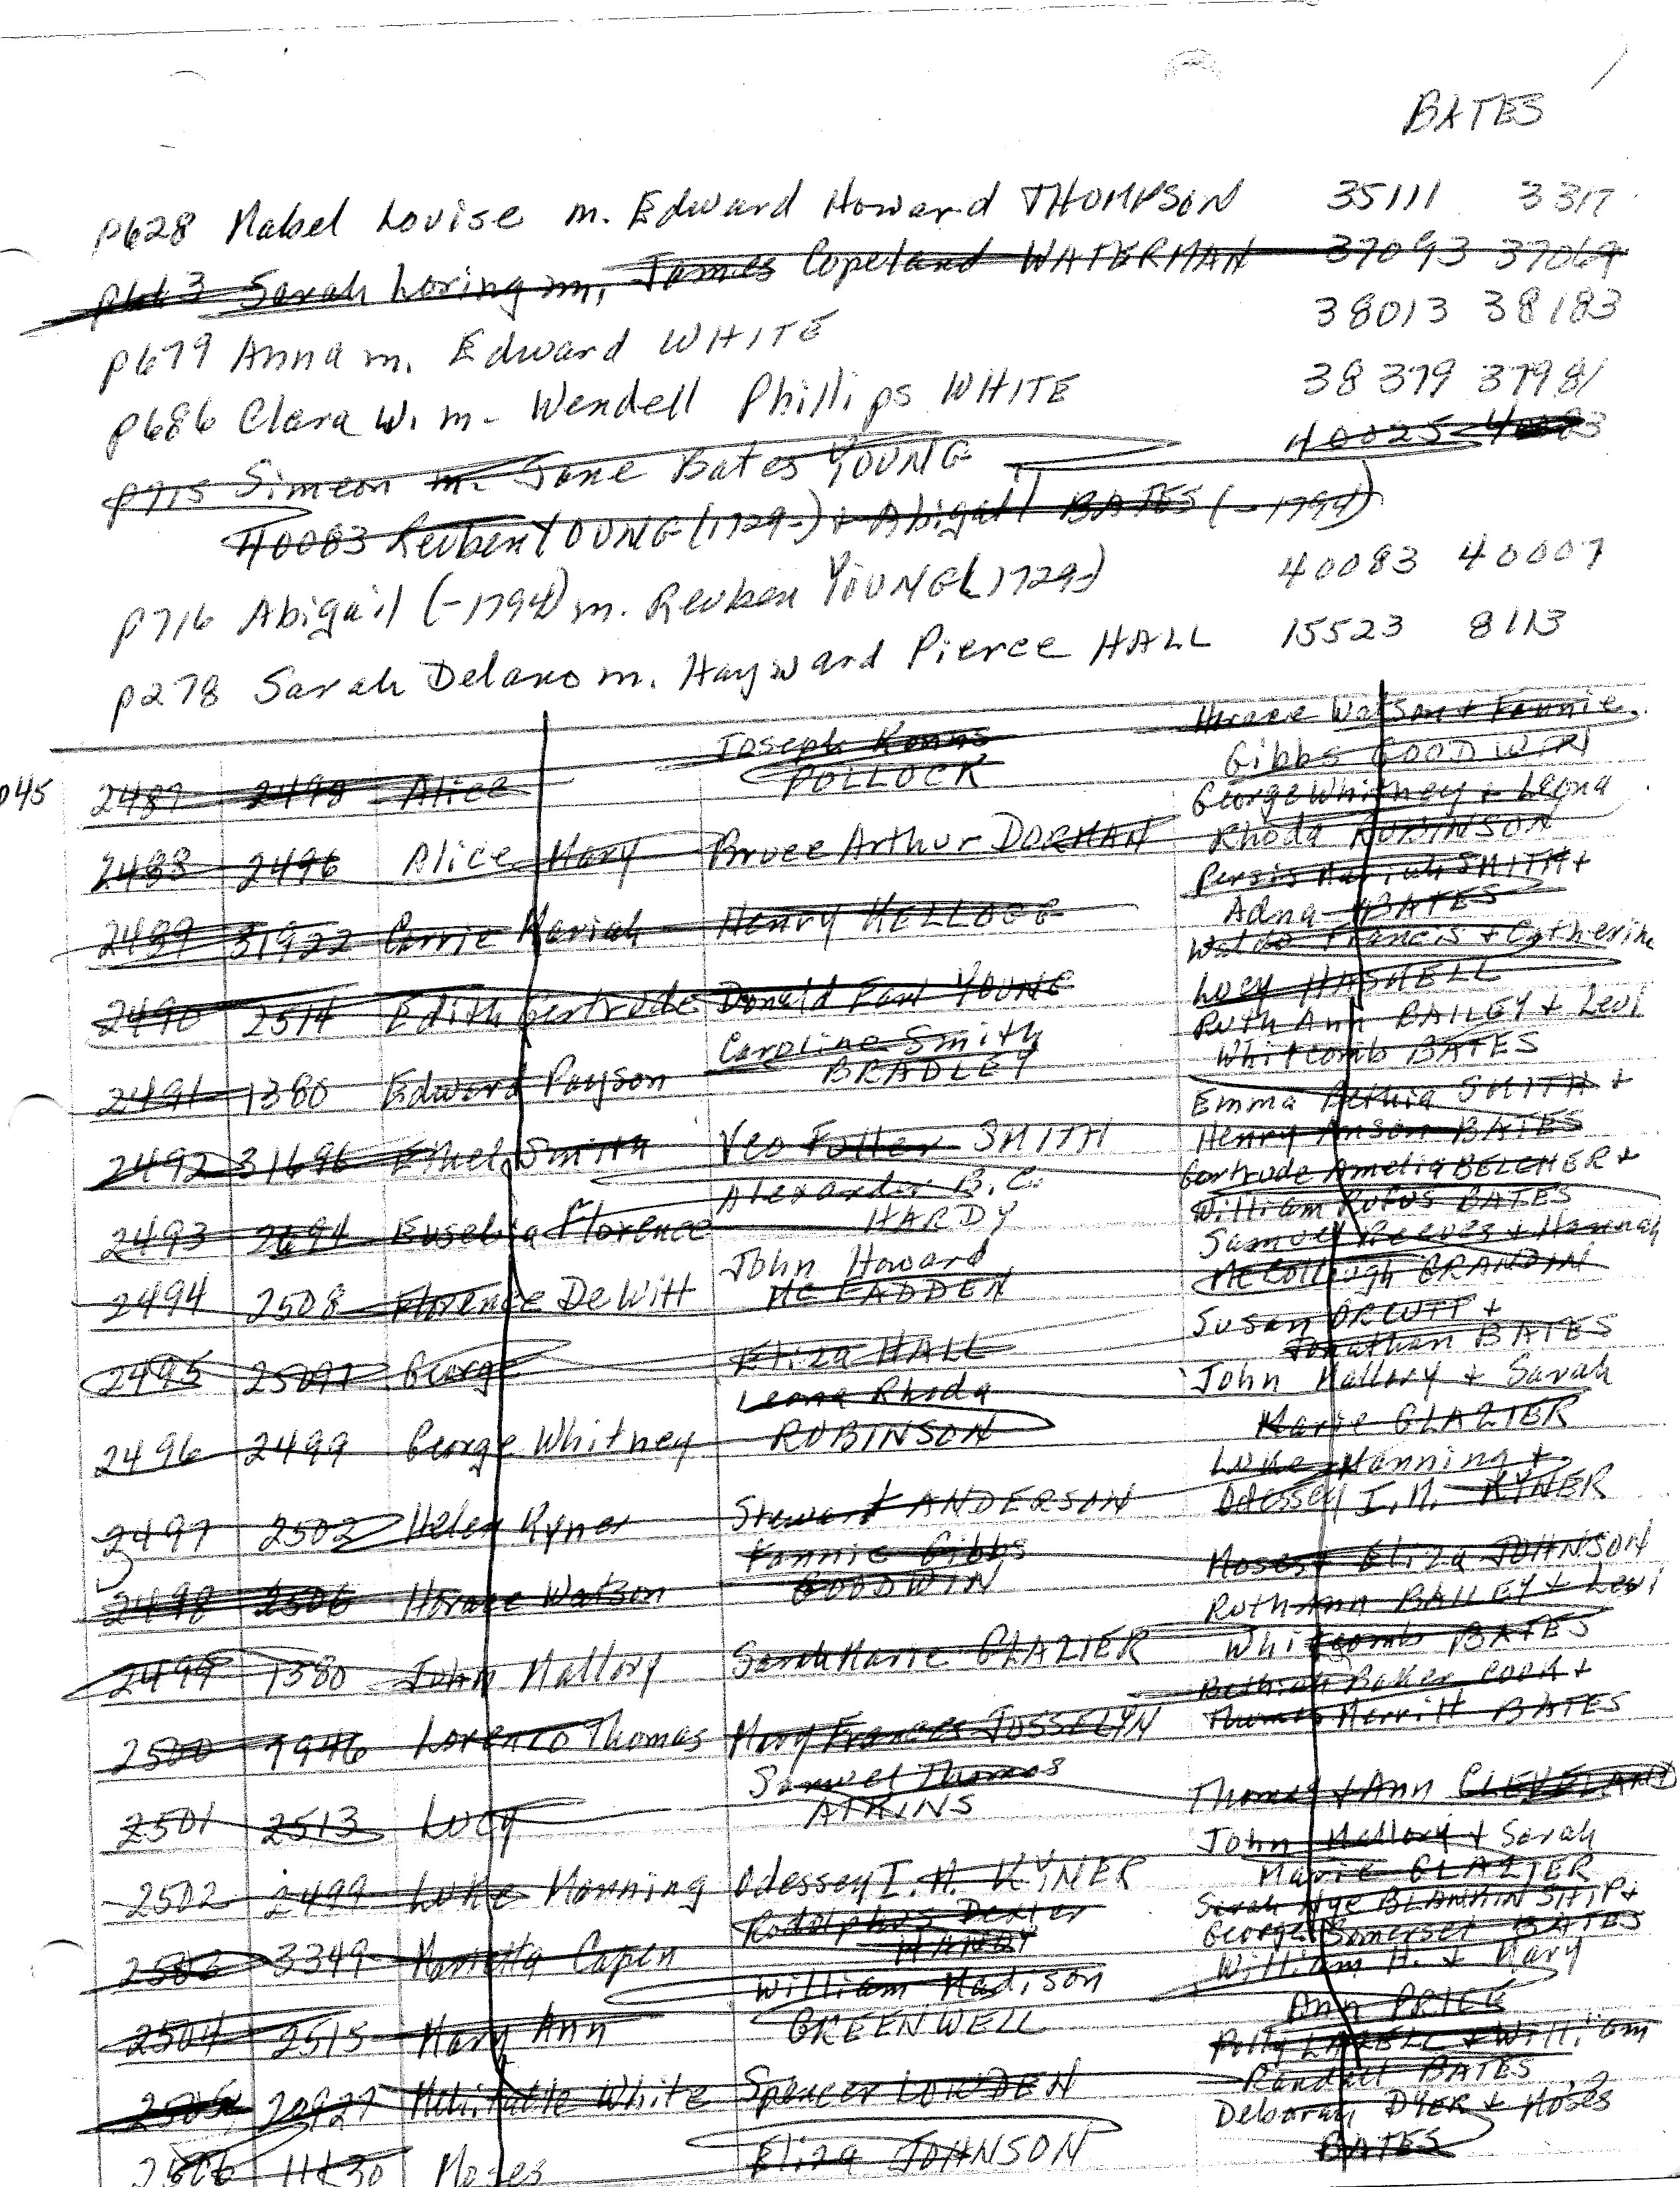 BATES
p628 Mabel Louise m. Edward Howard THOMPSON 35111 3317
p663 Sarah Loring m. James Copeland WATERMAN 37093 37069
p679 Anna m. Edward WHITE 38013 38183
p686 Clara W. m. Wendell Phillips WHITE 38379 37981
p715 Simeon m. Jane Bates YOUNG 40025
40083 Reuben YOUNG (1729-) + Abigail BATES (-1794)
p716 Abigail (-1794) m. Reuben YOUNG (1729-) 40083 40007
p278 Sarah Delano m. Hayward Pierce HALL 15523 8113
Joseph Horace Watson + Fannie
2487 2498 Alice POLLOCK Gibbs GOODWIN
George Whitney + Leona
2488 2496 Alice Mary Bruce Arthur DORMAN Rhoda ROBINSON
Persis Mariah SMITH +
2489 31922 Carrie Mariah Henry KELLOGG Adna BATES
Waldo Francis + Catherine
2490 2514 Edith Gertrude Donald Earl YOUNG Lucy HASKELL
Caroline Smith Ruth Ann BAILEY + Levi
2491 1380 Edward Payson BRADLEY Whitcomb BATES
Emma Bethia SMITH +
2492 31696 Ethel Smith Veo Fuller SMITH Henry Anson BATES
Alexander B. C. Gertrude Amelia BELCHER +
2493 2694 Euselia Florence HARDY William Rufus BATES
John Howard Samuel Reeves + Hannah
2494 2508 Florence DeWitt McFADDEN McCollough GRANDIN
Susan ORCUTT +
2495 25097 George Eliza HALL Jonathan BATES
Leona Rhoda John Mallory + Sarah
2496 2499 George Whitney ROBINSON Marie GLAZIER
Luke Manning +
2497 2502 Helen Kyner Stewart ANDERSON Odessey I. M. KYNER
Fannie Gibbs
2498 2506 Horace Watson GOODWIN Moses + Eliza JOHNSON
Ruth Ann BAILEY + Levi
2499 1380 John Mallory Sarah Marie GLAZIER Whitcomb BATES
Bethiah Baker COOK +
2500 9946 Lorenzo Thomas Mary Frances JOSSELYN Thomas Merritt BATES
Samuel Thomas
2501 2513 Lucy ATKINS Thomas + Ann CLEVELAND
John Mallory + Sarah
2502 2499 Luke Manning Odessey I. M. KYNER Marie GLAZIER
Rodolphus Dexter Sarah Nye BLANKINSHIP +
2503 3349 Marietta Capen HANDY George Somerset BATES
William Madison William H. + Mary
2504 2515 Mary Ann GREENWELL Ann PRICE
Polly LAZELL + William
2505 20927 Mehitable White Spencer LOWDEN Randall BATES
Deborah DYER + Moses
2506 11830 Moses Eliza JOHNSON BATES